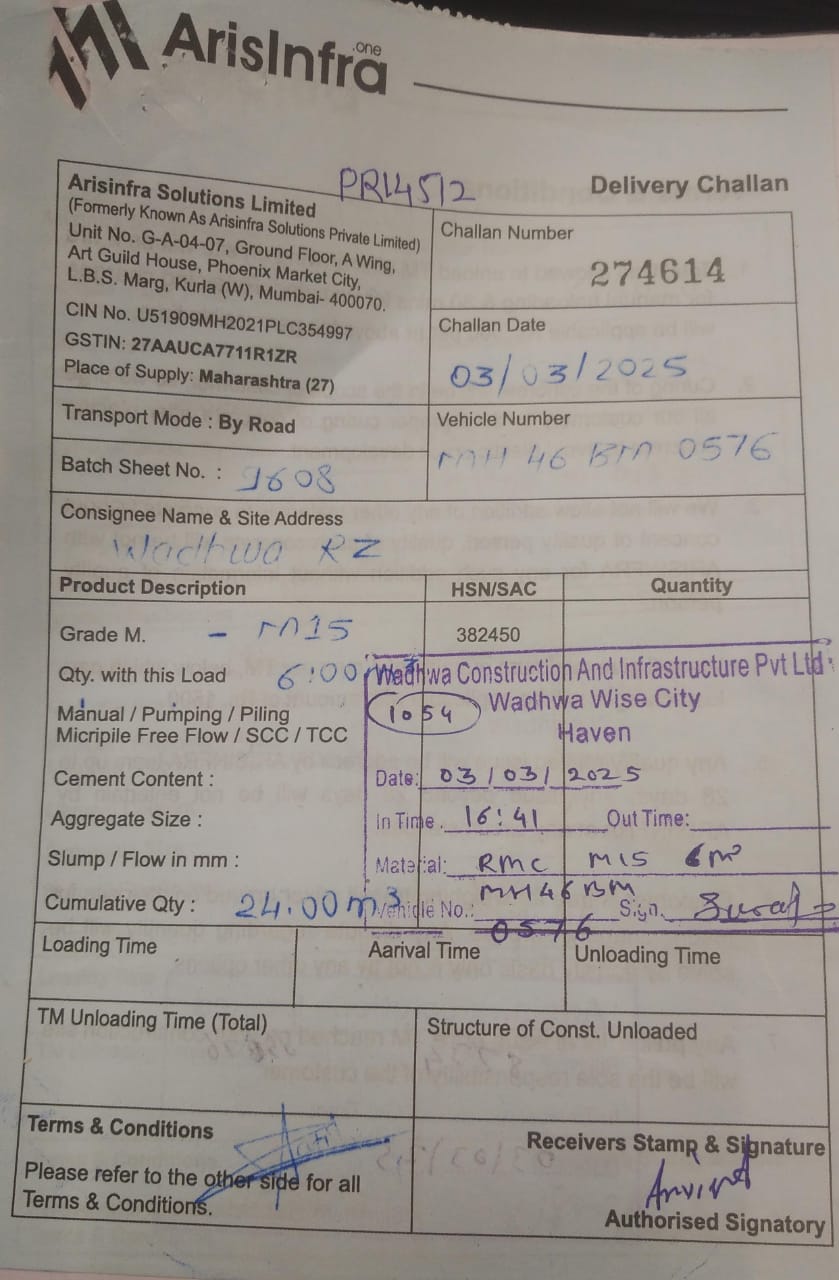 ArisInfra.one
PR14512
Delivery Challan
Arisinfra Solutions Limited
(Formerly Known As Arisinfra Solutions Private Limited)
Unit No. G-A-04-07, Ground Floor, A Wing,
Art Guild House, Phoenix Market City,
L.B.S. Marg, Kurla (W), Mumbai- 400070.
CIN No. U51909MH2021PLC354997
GSTIN: 27AAUCA7711R1ZR
Place of Supply: Maharashtra (27)
Challan Number
274614
Challan Date
03/03/2025
Transport Mode : By Road
Batch Sheet No. : 9608
Vehicle Number
MH 46 BM 0576
Consignee Name & Site Address
Wadhwa RZ
Product Description HSN/SAC Quantity
Grade M. - M15 382450
Qty. with this Load 6:00
Manual / Pumping / Piling
Micripile Free Flow / SCC / TCC
Cement Content :
Aggregate Size :
Slump / Flow in mm :
Cumulative Qty : 24.00 m³
Wadhwa Construction And Infrastructure Pvt Ltd
1054 Wadhwa Wise City
Haven
Date: 03/03/2025
In Time. 16:41 Out Time:
Material: RMC M15 6m³
Vehicle No.: MH46BM Sign. Suraj
0576
Loading Time Aarival Time Unloading Time
TM Unloading Time (Total) Structure of Const. Unloaded
Terms & Conditions
Please refer to the other side for all
Terms & Conditions.
Receivers Stamp & Signature
Arvind
Authorised Signatory